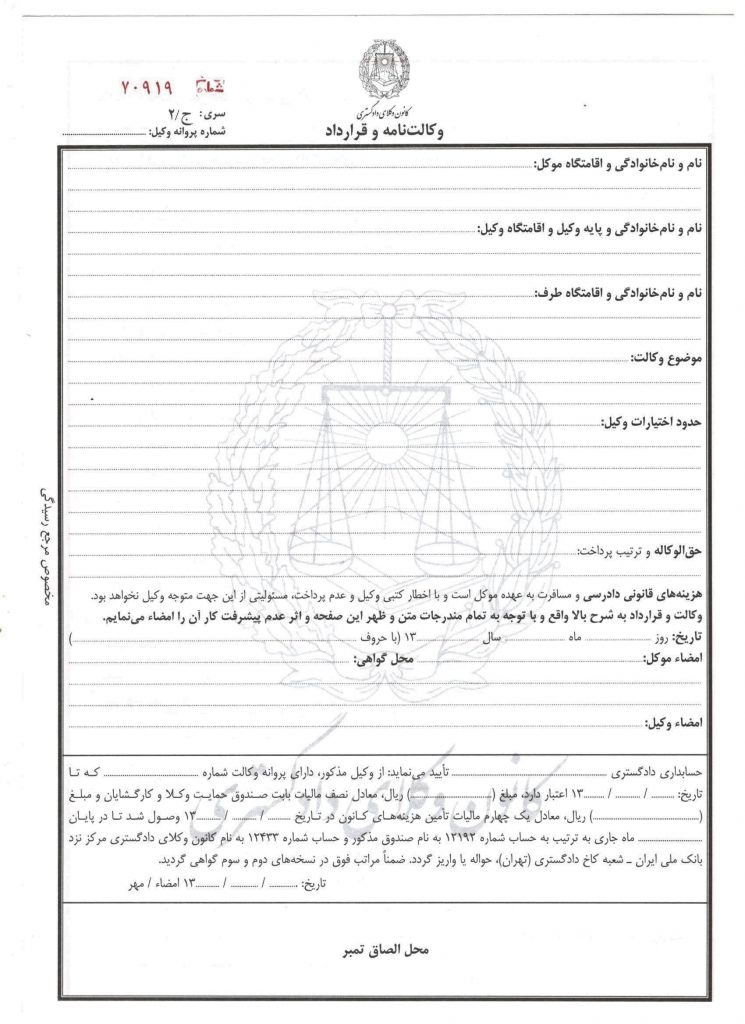 کانون وکلای دادگستری
وکالت‌نامه و قرارداد
شماره ۷۰۹۱۹
سری: ج/۲
شماره پروانه وکیل:
نام و نام‌خانوادگی و اقامتگاه موکل:
نام و نام‌خانوادگی و پایه وکیل و اقامتگاه وکیل:
نام و نام‌خانوادگی و اقامتگاه طرف:
موضوع وکالت:
حدود اختیارات وکیل:
حق‌الوکاله و ترتیب پرداخت:
هزینه‌های قانونی دادرسی و مسافرت به عهده موکل است و با اخطار کتبی وکیل و عدم پرداخت، مسئولیتی از این جهت متوجه وکیل نخواهد بود.
وکالت و قرارداد به شرح بالا واقع و با توجه به تمام مندرجات متن و ظهر این صفحه و اثر عدم پیشرفت کار آن را امضاء می‌نمایم.
تاریخ: روز ........ ماه ........ سال ........ ۱۳ (با حروف ........ )
امضاء موکل: ........ محل گواهی:
امضاء وکیل:
حسابداری دادگستری ........ تأیید می‌نماید: از وکیل مذکور، دارای پروانه وکالت شماره ........ که تا
تاریخ: ........ / ........ / ........۱۳ اعتبار دارد، مبلغ (........) ریال، معادل نصف مالیات بابت صندوق حمایت وکلا و کارگشایان و مبلغ
(........) ریال، معادل یک چهارم مالیات تأمین هزینه‌های کانون در تاریخ ........ / ........ / ........۱۳ وصول شد تا در پایان
........ ماه جاری به ترتیب به حساب شماره ۱۲۱۹۲ به نام صندوق مذکور و حساب شماره ۱۲۴۳۳ به نام کانون وکلای دادگستری مرکز نزد
بانک ملی ایران ـ شعبه کاخ دادگستری (تهران)، حواله یا واریز گردد. ضمناً مراتب فوق در نسخه‌های دوم و سوم گواهی گردید.
تاریخ: ........ / ........ / ........۱۳ امضاء / مهر
محل الصاق تمبر
مخصوص مرجع رسیدگی
کانون وکلای دادگستری